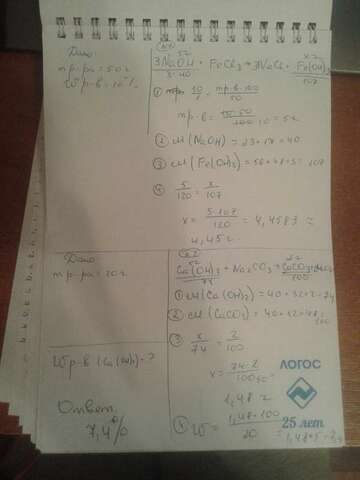 Дано:
mр-ра = 50г
Wр-в = 10%
№1
5г
x г
3NaOH + FeCl3 → 3NaCl + Fe(OH)3
3·40
107
① 10
mр-в·100
50
mр-в = 50·10
100
= 5г
② M(NaOH) = 23+17 = 40
③ M(Fe(OH)3) = 56+48+3 = 107
④ 5/120 = x/107
x = 5·107/120 = 4,4583 ≈
4,45г.
Дано
mр-ра = 20г
Wр-в (Ca(OH)2) = ?
Ответ
7,4%
№2
Ca(OH)2 + Na2CO3 →
CaCO3
74
100
① M(Ca(OH)2) = 40+32+2 = 74
② M(CaCO3) = 40+12+48=
100
③ x/74 = 2/100
x = 74·2/100
=
1,48 г
④ W = 1,48·100/20 =
1,48·5=7,4
ЛОГОС
25 лет